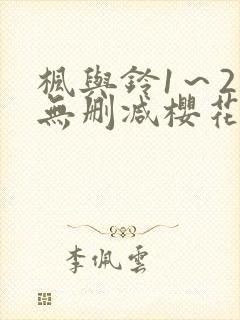 楓與鈴1～2
無刪減櫻花
李佩雲